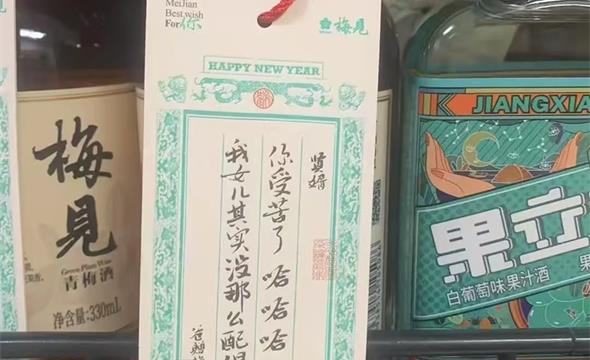 梅見
Green Plum Wine
青梅酒
净含量:330mL
MeiJian
Best wish
For 你
梅見
HAPPY NEW YEAR
贤婿
你受苦了 哈哈哈
我女儿其实没那么配
JIANGXIA
果立
白葡萄味果汁酒
果